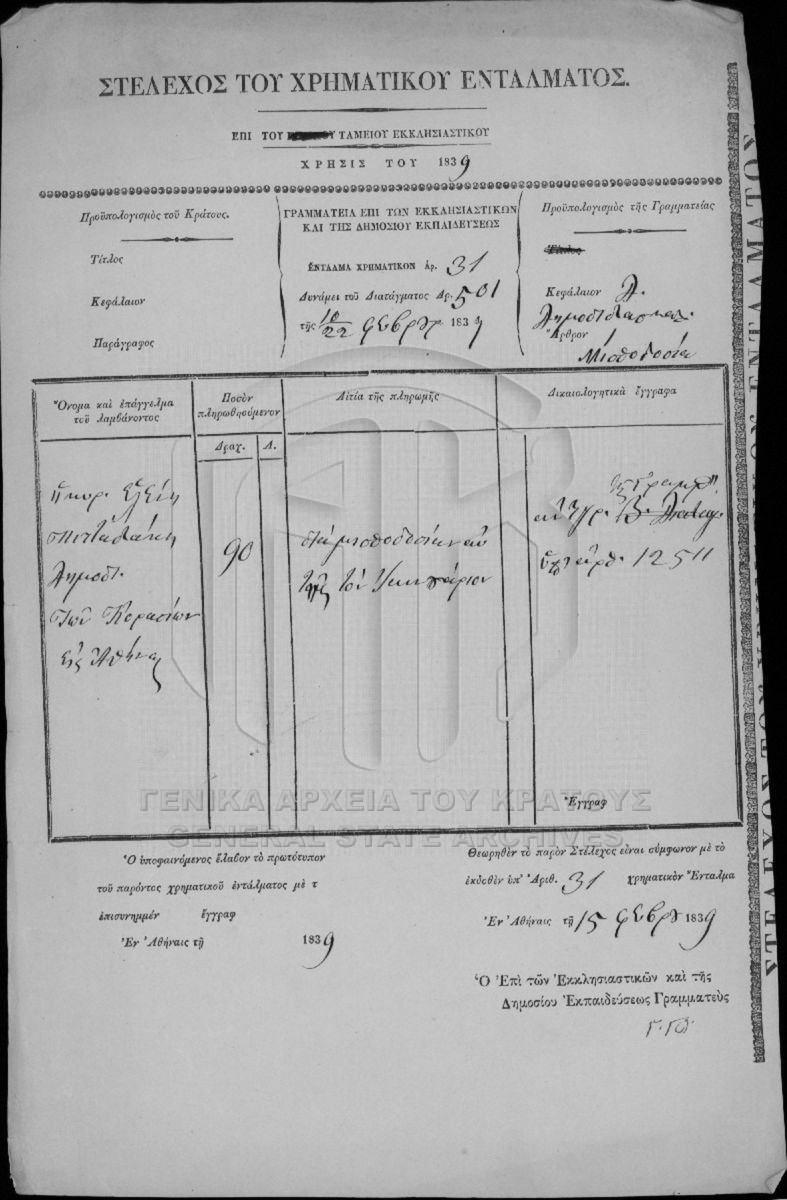 ΣΤΕΛΕΧΟΣ ΤΟΥ ΧΡΗΜΑΤΙΚΟΥ ΕΝΤΑΛΜΑΤΟΣ.
ΕΠΙ ΤΟΥ ΤΑΜΕΙΟΥ ΕΚΚΛΗΣΙΑΣΤΙΚΟΥ
ΧΡΗΣΙΣ ΤΟΥ 1839
Προϋπολογισμὸς τοῦ Κράτους.
Τίτλος
Κεφάλαιον
Παράγραφος
ΓΡΑΜΜΑΤΕΙΑ ΕΠΙ ΤΩΝ ΕΚΚΛΗΣΙΑΣΤΙΚΩΝ
ΚΑΙ ΤΗΣ ΔΗΜΟΣΙΟΥ ΕΚΠΑΙΔΕΥΣΕΩΣ
ΕΝΤΑΛΜΑ ΧΡΗΜΑΤΙΚΟΝ ἀρ. 31
Δυνάμει τοῦ Διατάγματος Ἀρ. 501
τῆς 10/22 φεβρ 1839
Προϋπολογισμὸς τῆς Γραμματείας
Τίτλος
Κεφάλαιον Α.
Δημοδιδασκαλ.
Ἄρθρον 1
Μισθοδοσία
Ὄνομα καὶ ἐπάγγελμα
τοῦ λαμβάνοντος
Ποσὸν
πληρωθησόμενον
Δραχ. Λ.
Αἰτία τῆς πληρωμῆς
Δικαιολογητικὰ ἔγγραφα
ἡ κυρ. Ἑλένη
Δημοδι.
τῶν Κορασίων
εἰς Ἀθήνας
90
διὰ μισθοδοσίαν
τὸν Ἰαννουάριον
ὑπ' ἀρθ. 12511
Ἔγγραφ
ΓΕΝΙΚΑ ΑΡΧΕΙΑ ΤΟΥ ΚΡΑΤΟΥΣ
GENERAL STATE ARCHIVES
Ὁ ὑποφαινόμενος ἔλαβον τὸ πρωτότυπον
τοῦ παρόντος χρηματικοῦ ἐντάλματος μὲ τ
ἐπισυνημμέν ἔγγραφ
Ἐν Ἀθήναις τῇ 1839
Θεωρηθὲν τὸ παρὸν Στέλεχος εἶναι σύμφωνον μὲ τὸ
ἐκδοθὲν ὑπ' Ἀριθ. 31 χρηματικὸν Ἔνταλμα
Ἐν Ἀθήναις τῇ 15 φεβρ 1839
Ὁ Ἐπὶ τῶν Ἐκκλησιαστικῶν καὶ τῆς
Δημοσίου Ἐκπαιδεύσεως Γραμματεὺς